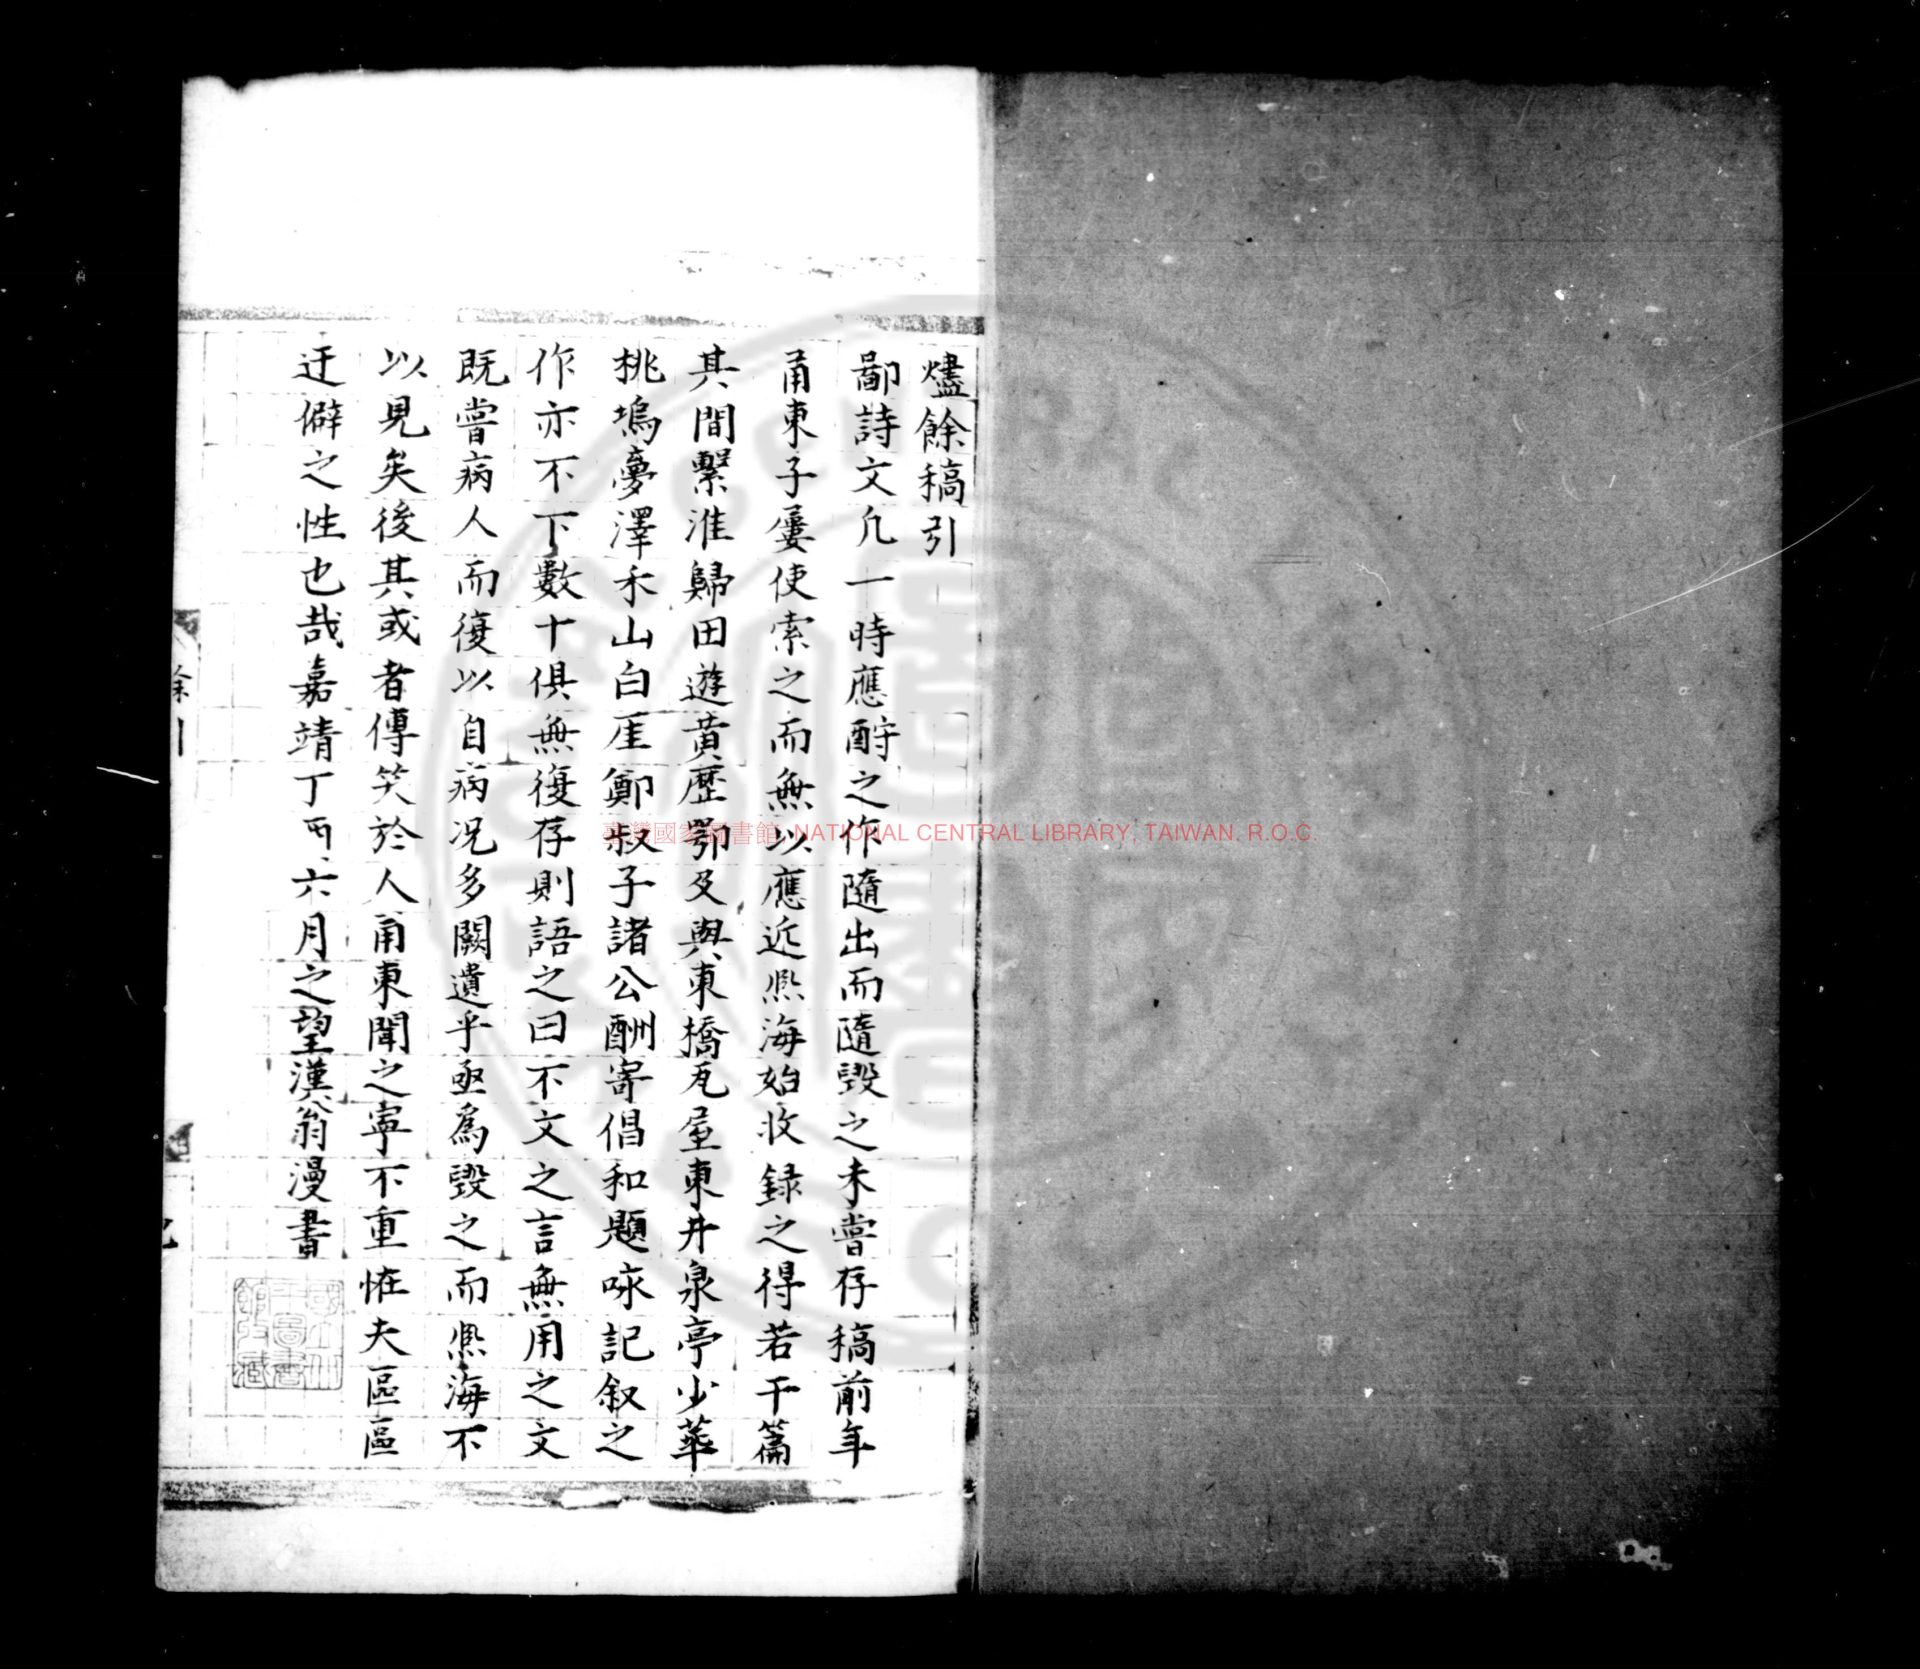 燼餘稿引
鄙詩文凡一時應酧之作隨出而隨毀之未嘗存稿前年
甬東子屢使索之而無以應近熈海始收録之得若干篇
其間繫淮歸田遊黄歷鄂及與東橋尾屋東井泉亭少華
桃塢夢澤禾山白厓鄭叔子諸公酬寄倡和題咏記叙之
作亦不下數十俱無復存則語之曰不文之言無用之文
既嘗病人而復以自病况多闕遺乎亟為毀之而熈海不
以見矣後其或者傳笑於人甬東聞之寧不重恠夫區區
迂僻之性也哉嘉靖丁酉六月之望漢翁漫書
臺灣國家圖書館, NATIONAL CENTRAL LIBRARY, TAIWAN. R.O.C.